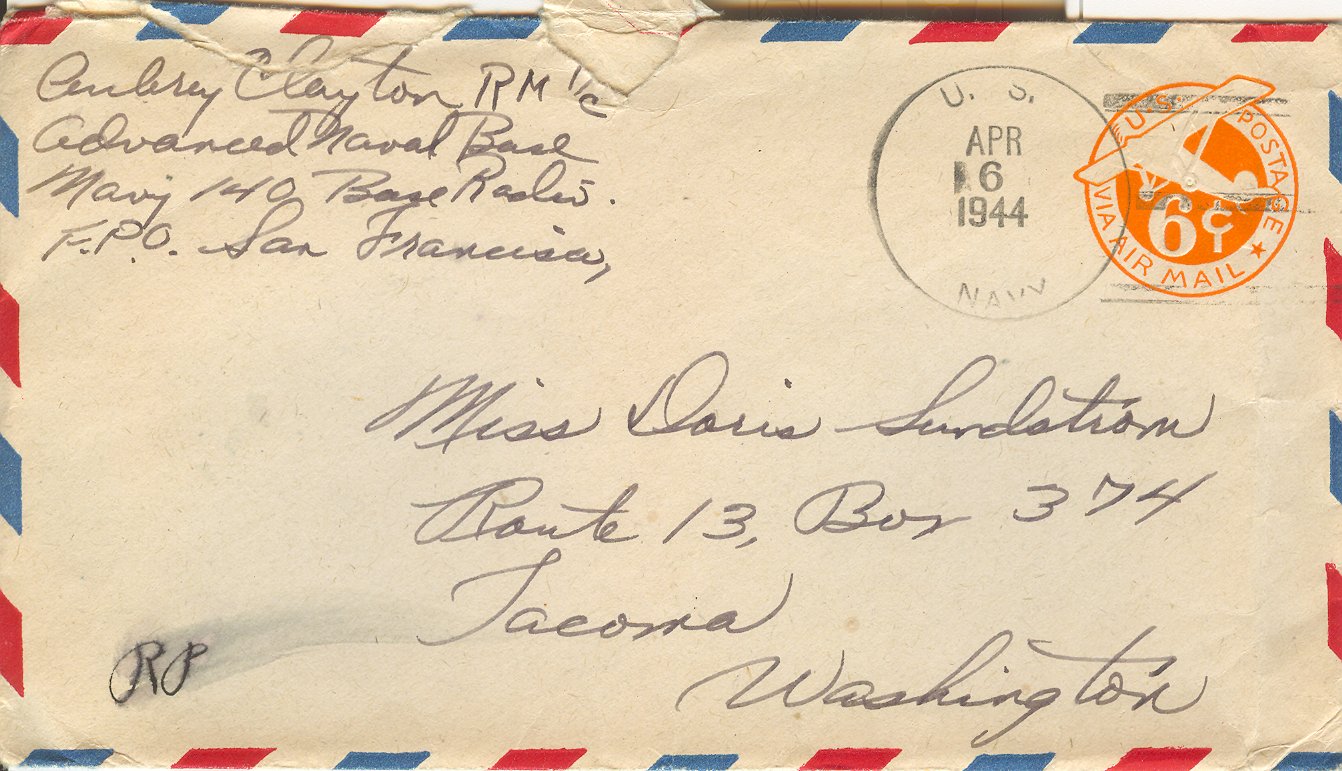 Aubrey Clayton RM 1/c
Advanced Naval Base
Navy 140 Base Radio.
F.P.O. San Francisco,
U. S.
APR
6
1944
NAVY
U.S. POSTAGE
6¢
VIA AIR MAIL
Miss Doris Sundstrom
Route 13, Box 374
Tacoma
Washington
RP